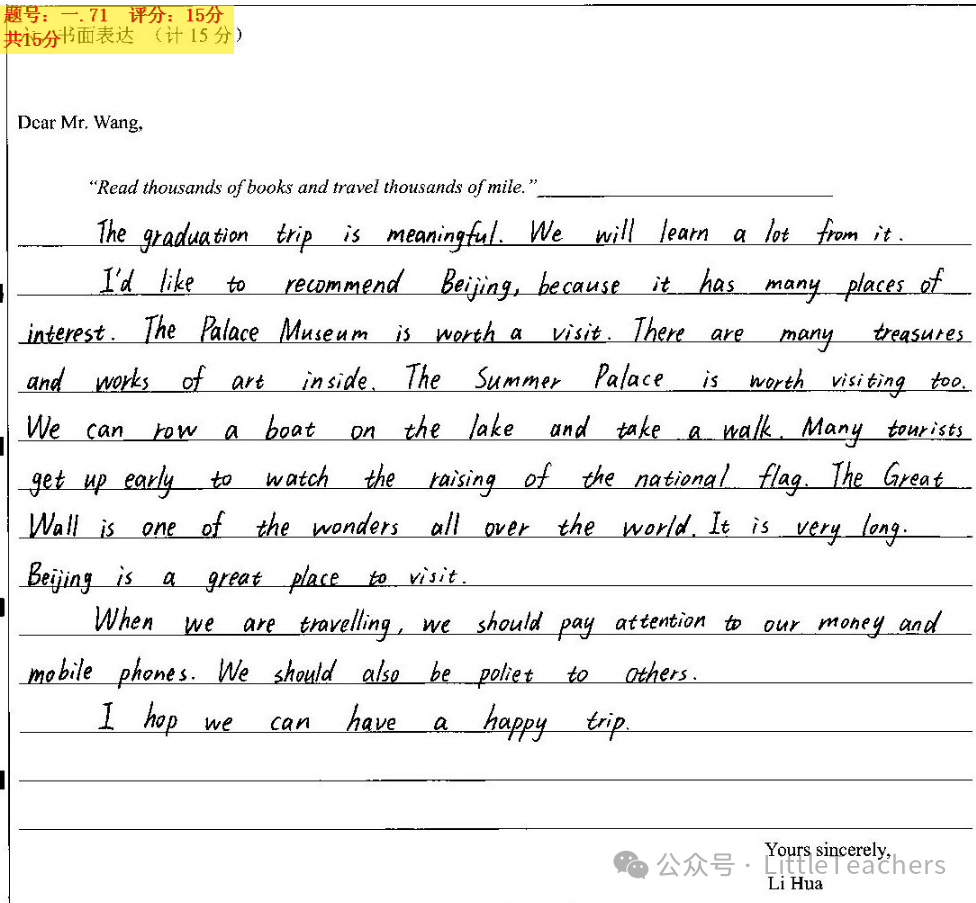 题号：一.71 评分：15分
共15分 书面表达 （计 15 分）
Dear Mr. Wang,
“Read thousands of books and travel thousands of mile.”
The graduation trip is meaningful. We will learn a lot from it.
I'd like to recommend Beijing, because it has many places of
interest. The Palace Museum is worth a visit. There are many treasures
and works of art inside. The Summer Palace is worth visiting too.
We can row a boat on the lake and take a walk. Many tourists
get up early to watch the raising of the national flag. The Great
Wall is one of the wonders all over the world. It is very long.
Beijing is a great place to visit.
When we are travelling, we should pay attention to our money and
mobile phones. We should also be poliet to others.
I hop we can have a happy trip.
Yours sincerely,
公众号 · LittleTeachers
Li Hua